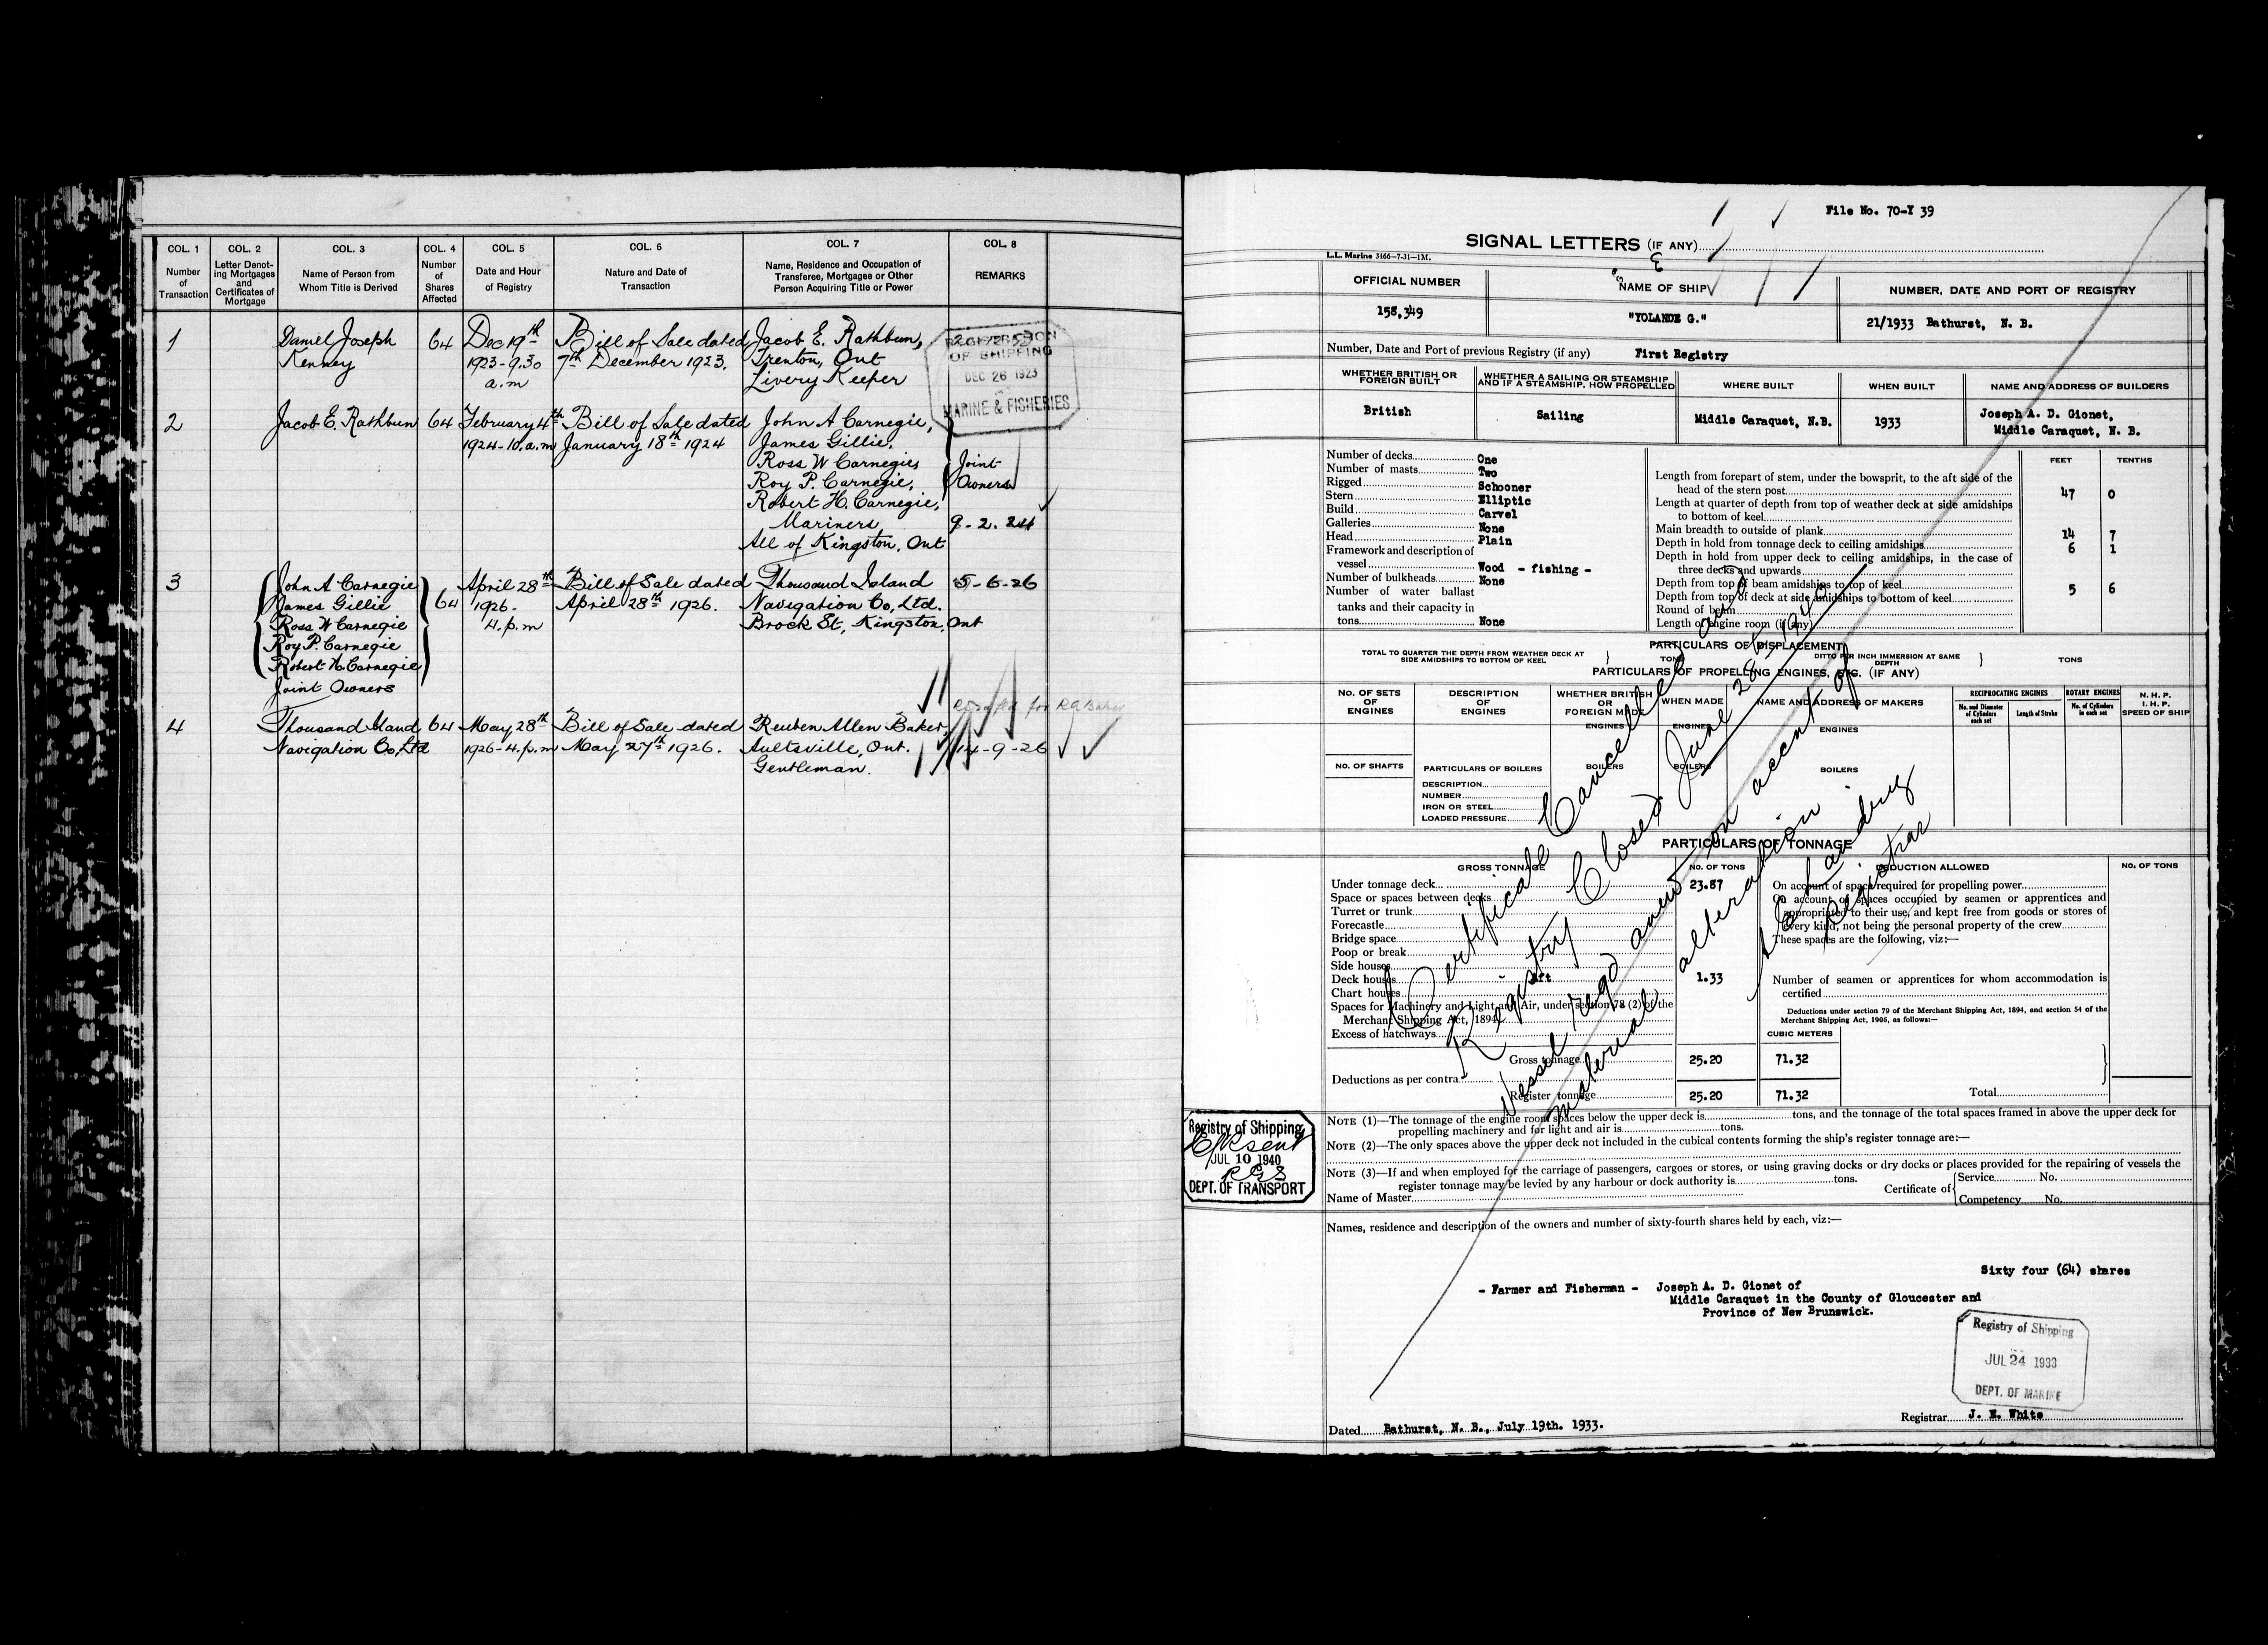 COL. 1 COL. 2 COL. 3 COL. 4 COL. 5 COL. 6 COL. 7 COL. 8
Number of Transaction
Letter Denoting Mortgages and Certificates of Mortgage
Name of Person from Whom Title is Derived
Number of Shares Affected
Date and Hour of Registry
Nature and Date of Transaction
Name, Residence and Occupation of Transferee, Mortgagee or Other Person Acquiring Title or Power
REMARKS
1 Daniel Joseph 64 Dec 19th Bill of Sale dated Jacob E. Rathbun,
Kenney 1923-9.30 7th December 1923. Trenton, Ont
a.m Livery Keeper
REGISTER
OF SHIPPING
DEC 26 1923
MARINE & FISHERIES
2 Jacob E. Rathbun 64 February 4th Bill of Sale dated John A Carnegie,
1924-10.a.m January 18th 1924 James Gillie,
Ross W Carnegie, Joint
Roy P. Carnegie, Owners
Robert H. Carnegie,
Mariners 9-2.24
All of Kingston, Ont
3 John A Carnegie 64 April 28th Bill of Sale dated Thousand Island 5-6-26
James Gillie 1926. April 28th 1926. Navigation Co, Ltd.
Ross W Carnegie 4.p.m Brock St, Kingston, Ont
Roy P. Carnegie
Robert H. Carnegie
Joint Owners
for RA Baker
4 Thousand Island 64 May 28th Bill of Sale dated Reuben Allen Baker,
Navigation Co, Ltd 1926-4.p.m May 27th 1926. Aultsville, Ont. 14-9-26
Gentleman.
File No. 70-Y 39
SIGNAL LETTERS (IF ANY)
L.L. Marine 3466-7-31-1M.
OFFICIAL NUMBER NAME OF SHIP NUMBER, DATE AND PORT OF REGISTRY
158,349 "YOLANDE G." 21/1933 Bathurst, N. B.
Number, Date and Port of previous Registry (if any) First Registry
WHETHER BRITISH OR FOREIGN BUILT
WHETHER A SAILING OR STEAMSHIP AND IF A STEAMSHIP, HOW PROPELLED
WHERE BUILT WHEN BUILT NAME AND ADDRESS OF BUILDERS
British Sailing Middle Caraquet, N.B. 1933 Joseph A. D. Gionet,
Middle Caraquet, N. B.
Number of decks One
Number of masts Two
Rigged Schooner
Stern Elliptic
Build Carvel
Galleries None
Head Plain
Framework and description of
vessel Wood - fishing -
Number of bulkheads None
Number of water ballast
tanks and their capacity in
tons None
FEET TENTHS
Length from forepart of stem, under the bowsprit, to the aft side of the
head of the stern post 47 0
Length at quarter of depth from top of weather deck at side amidships
to bottom of keel
Main breadth to outside of plank 14 7
Depth in hold from tonnage deck to ceiling amidships 6 1
Depth in hold from upper deck to ceiling amidships, in the case of
three decks and upwards
Depth from top of beam amidships to top of keel 5 6
Depth from top of deck at side amidships to bottom of keel
Round of beam
Length of engine room (if any)
PARTICULARS OF DISPLACEMENT
TOTAL TO QUARTER THE DEPTH FROM WEATHER DECK AT SIDE AMIDSHIPS TO BOTTOM OF KEEL TONS
DITTO PER INCH IMMERSION AT SAME DEPTH TONS
PARTICULARS OF PROPELLING ENGINES, ETC. (IF ANY)
NO. OF SETS OF ENGINES
DESCRIPTION OF ENGINES
WHETHER BRITISH OR FOREIGN MADE
WHEN MADE
NAME AND ADDRESS OF MAKERS
RECIPROCATING ENGINES
No. and Diameter of Cylinders each set
Length of Stroke
ROTARY ENGINES
No. of Cylinders in each set
N. H. P.
I. H. P.
SPEED OF SHIP
ENGINES ENGINES ENGINES
NO. OF SHAFTS PARTICULARS OF BOILERS BOILERS BOILERS BOILERS
DESCRIPTION
NUMBER
IRON OR STEEL
LOADED PRESSURE
PARTICULARS OF TONNAGE
GROSS TONNAGE NO. OF TONS DEDUCTION ALLOWED NO. OF TONS
Under tonnage deck 23.87
Space or spaces between decks
Turret or trunk
Forecastle
Bridge space
Poop or break
Side houses
Deck houses Aft 1.33
Chart houses
Spaces for Machinery and Light and Air, under section 78 (2) of the
Merchant Shipping Act, 1894
Excess of hatchways
Gross tonnage 25.20
Deductions as per contra
Register tonnage 25.20
CUBIC METERS
71.32
71.32
On account of space required for propelling power
On account of spaces occupied by seamen or apprentices and
appropriated to their use, and kept free from goods or stores of
every kind, not being the personal property of the crew
These spaces are the following, viz:—
Number of seamen or apprentices for whom accommodation is
certified
Deductions under section 79 of the Merchant Shipping Act, 1894, and section 54 of the
Merchant Shipping Act, 1906, as follows:—
Total
Certificate Cancelled and
Registry Closed June 28th 1940
Vessel regd anew on accnt of
material alteration
Registrar
Registry of Shipping
CR sent
JUL 10 1940
DEPT. OF TRANSPORT
NOTE (1)—The tonnage of the engine room spaces below the upper deck is tons, and the tonnage of the total spaces framed in above the upper deck for
propelling machinery and for light and air is tons.
NOTE (2)—The only spaces above the upper deck not included in the cubical contents forming the ship's register tonnage are:—
NOTE (3)—If and when employed for the carriage of passengers, cargoes or stores, or using graving docks or dry docks or places provided for the repairing of vessels the
register tonnage may be levied by any harbour or dock authority is tons.
Name of Master Certificate of Service No.
Competency No.
Names, residence and description of the owners and number of sixty-fourth shares held by each, viz:—
Sixty four (64) shares
- Farmer and Fisherman - Joseph A. D. Gionet of
Middle Caraquet in the County of Gloucester and
Province of New Brunswick.
Registry of Shipping
JUL 24 1933
DEPT. OF MARINE
Dated Bathurst, N. B., July 19th. 1933. Registrar J. E. White